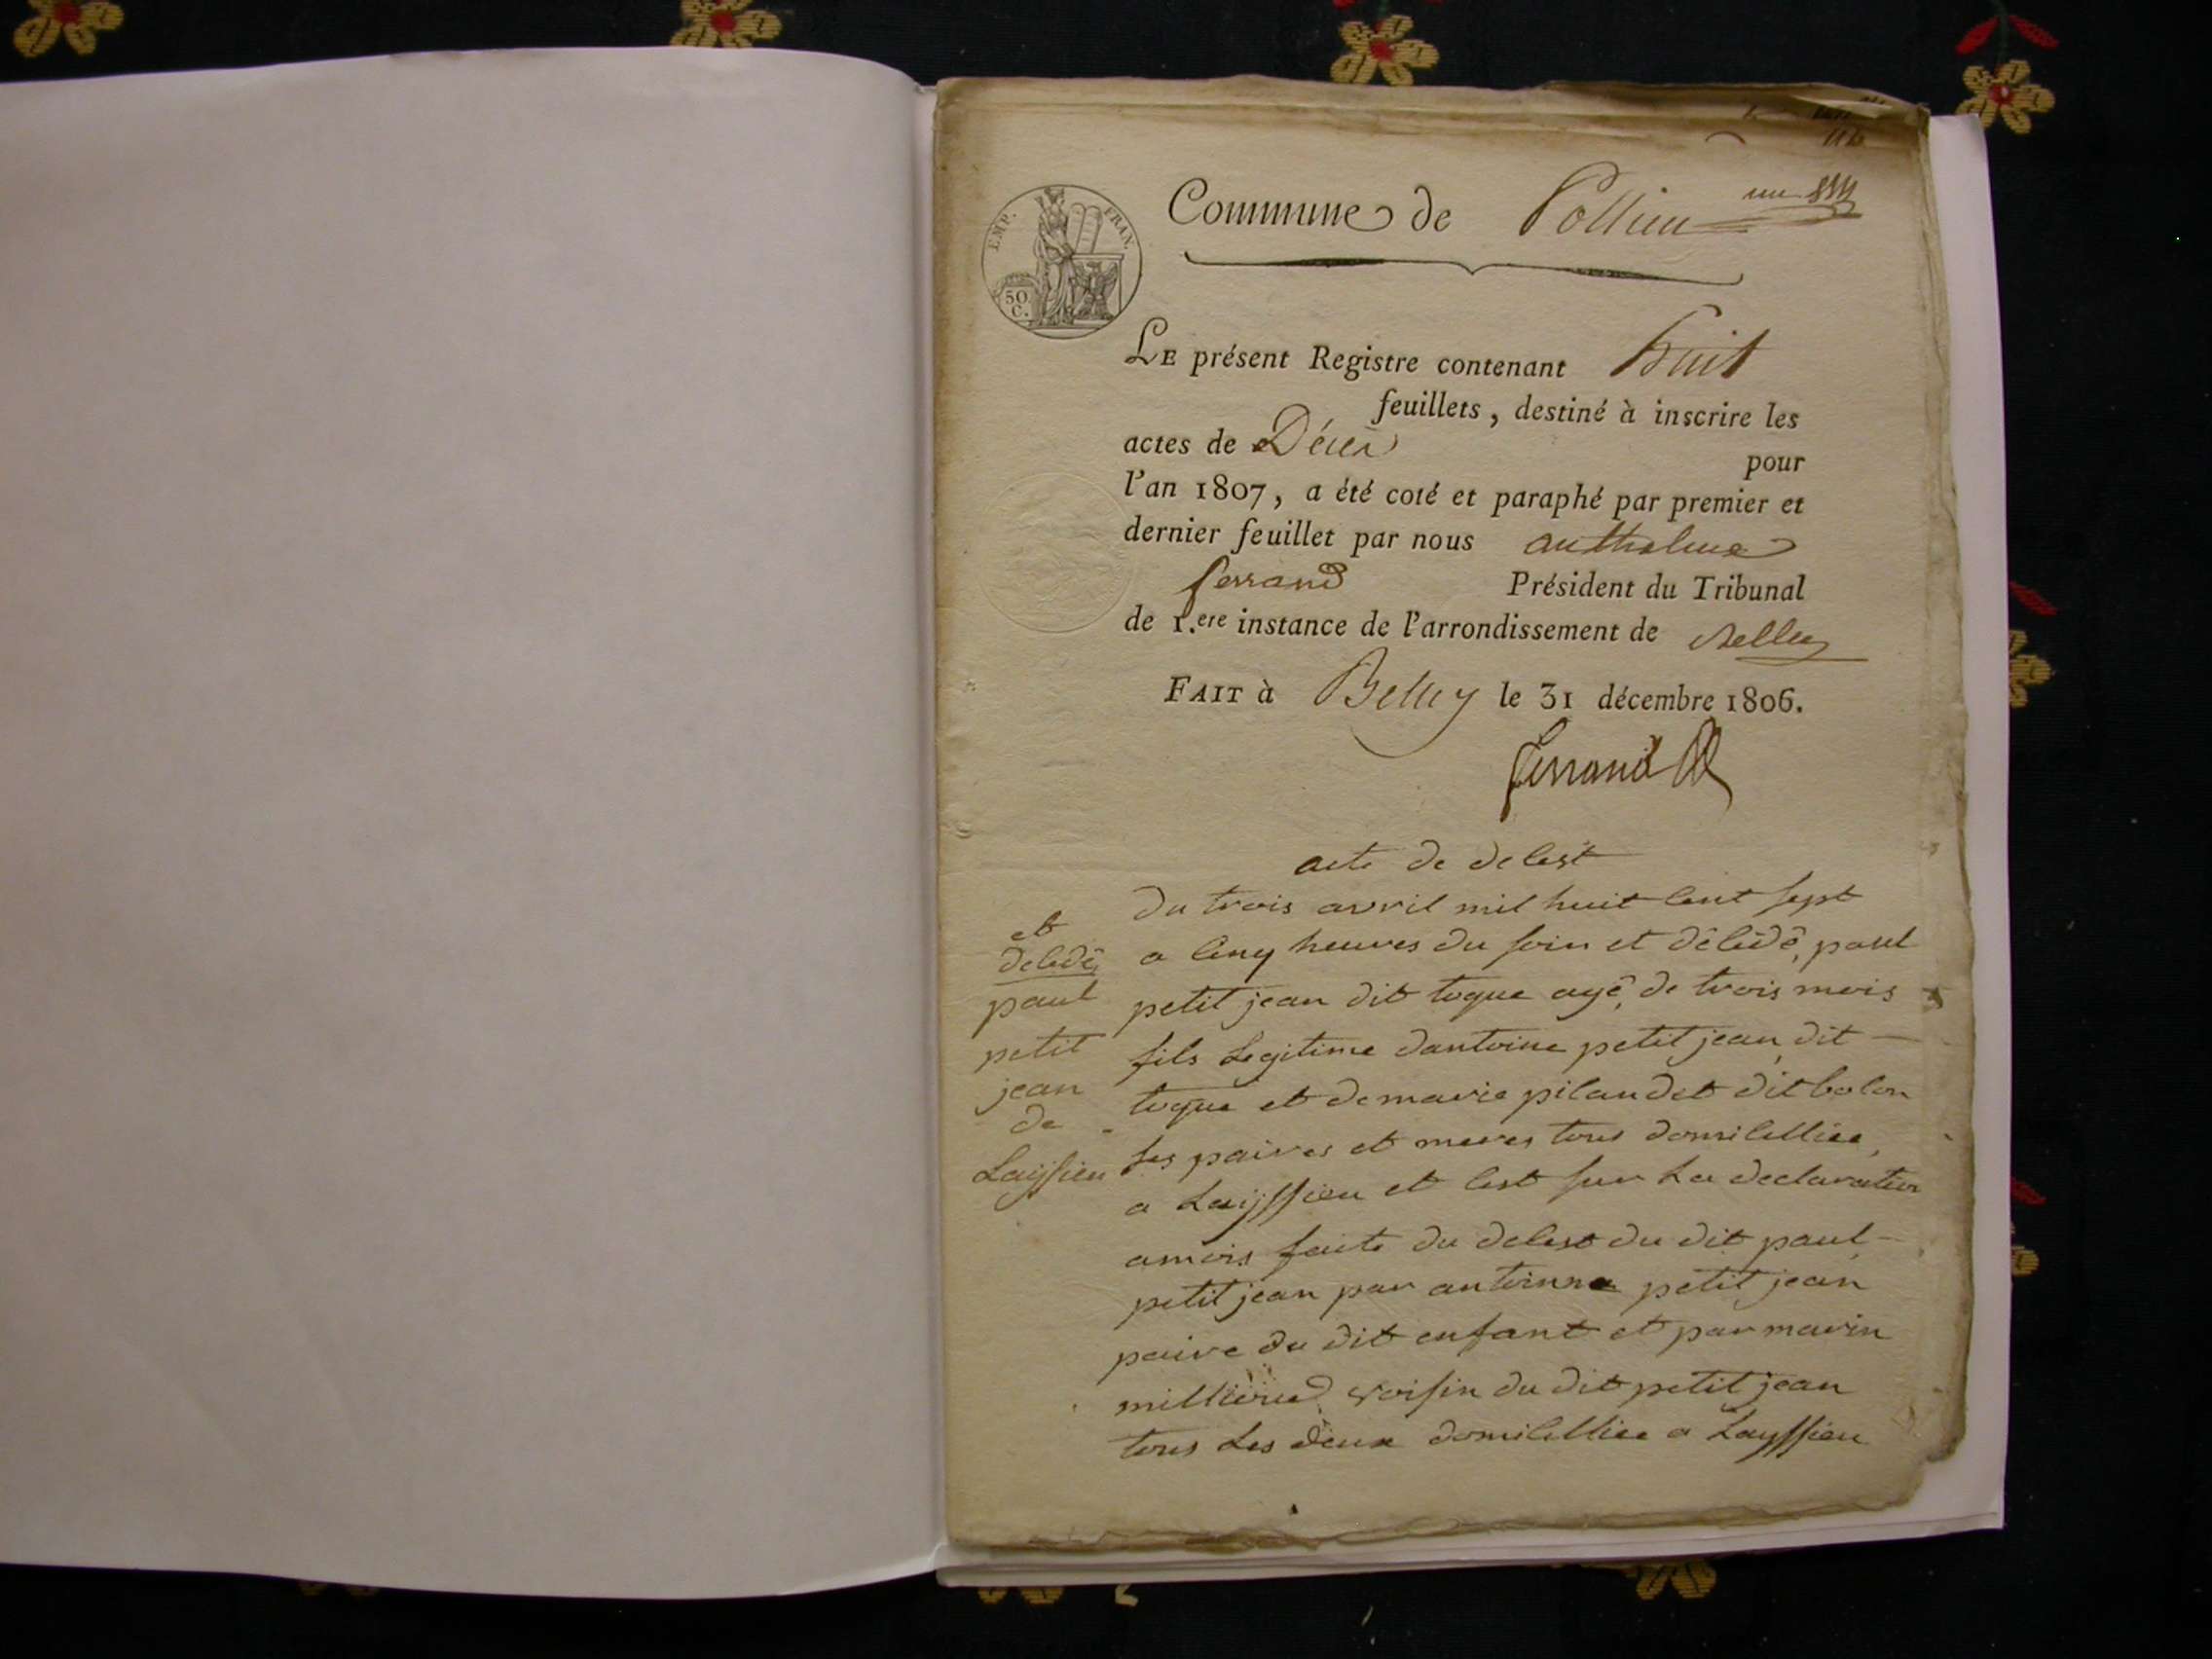 EMP. FRAN.
50 C.
Commune de Pollieu un
LE présent Registre contenant huit
feuillets, destiné à inscrire les
actes de Décès
pour
l'an 1807, a été coté et paraphé par premier et
dernier feuillet par nous anthelme
ferrand Président du Tribunal
de 1.ere instance de l'arrondissement de Belley
FAIT à Belley le 31 décembre 1806.
ferrand
acte de delest
du trois avril mil huit cent sept
a cinq heures du soir et décédé, paul
petit jean dit toque agé, de trois mois
fils Legitime dantoine petit jean dit
toque et de marie pilaudet dit bolon
ses paires et meres tous domicilliee
a Laissieu et cest sur La declaration
a mois faite du delest du dit paul
petit jean par antoinne petit jean
paire du dit enfant et par marin
voisin du dit petit jean
tous Les deux domicilliee a Layssieu
et
décédé,
paul
petit
jean
de
Laissieu